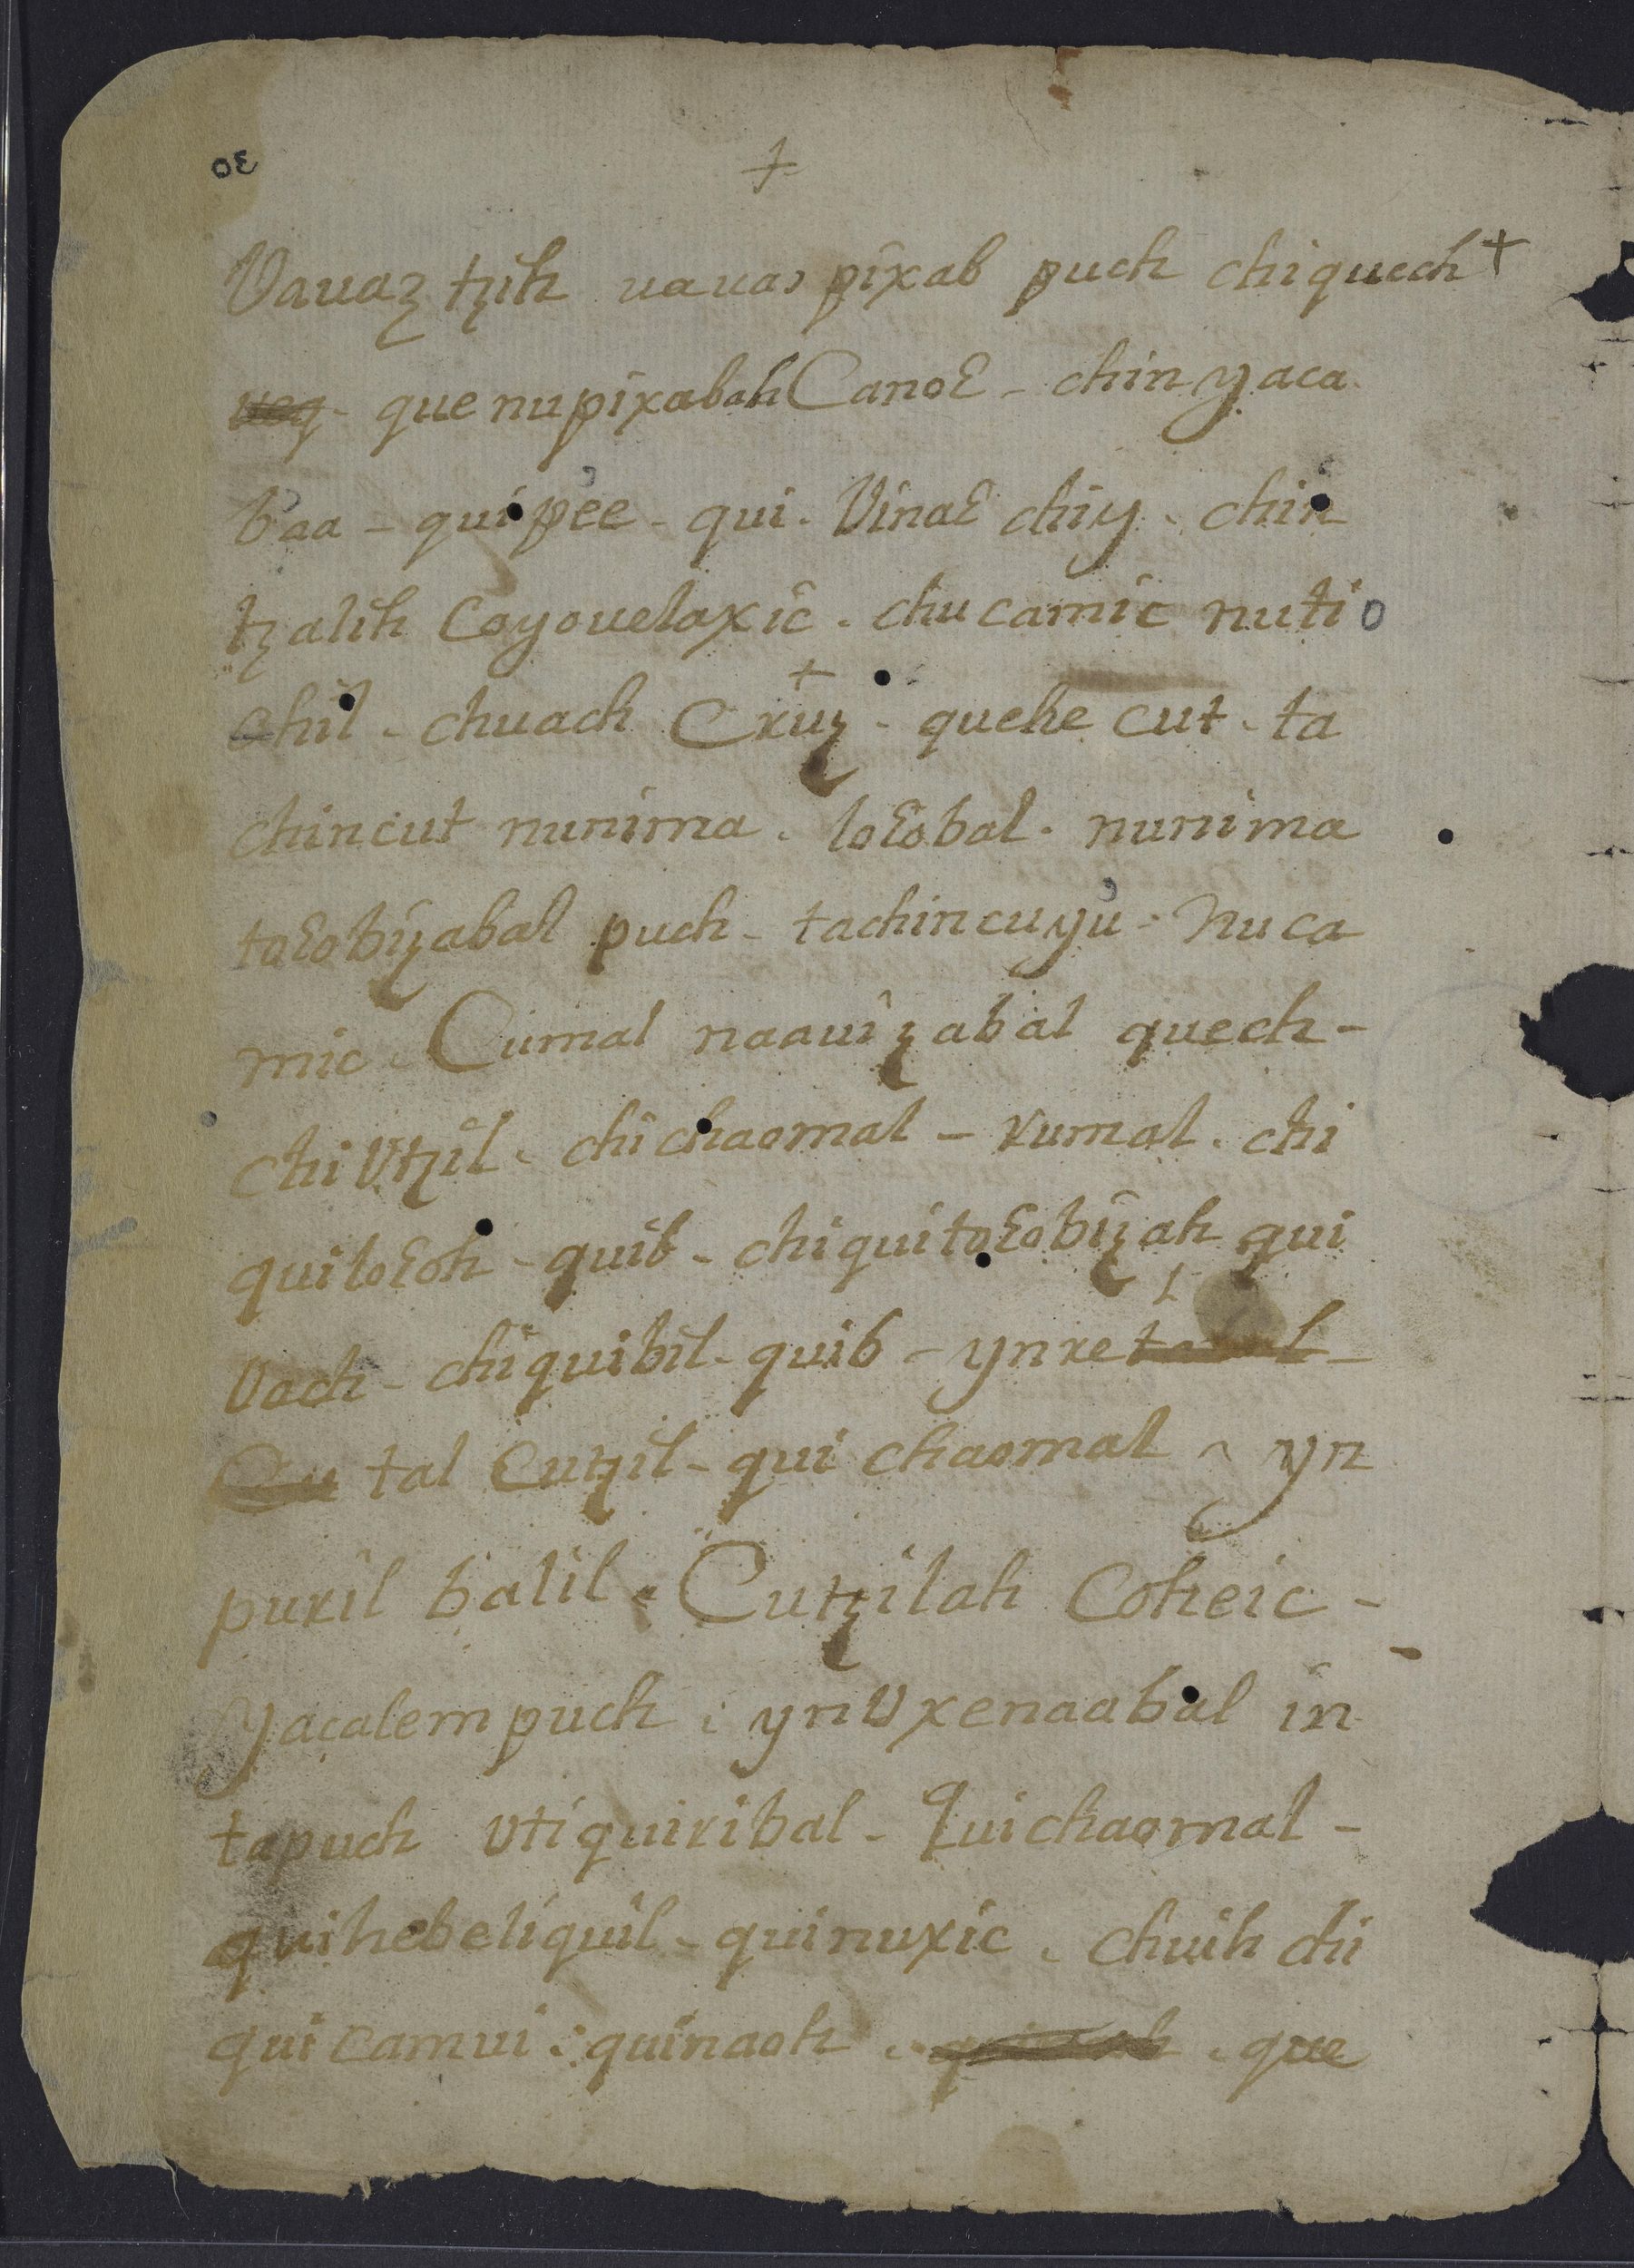 oɛ
+
Vauaz tzih uauas pixab puch chiquech +
que nupixabah Canoɛ - chin yaca
baa - qui pèe - qui. Vinaɛ chiy. chin
tzalih Coyouelaxic. chu camic nutio
ohil. chuach Cruz + - quehe cut - ta
chincut nunima. loɛobal. nunima
toɛobizabal puch - tachincuyù - Nuca
mic. Cumal naauizabal quech -
chi Vtzil. chi chaomal - rumal. chi
quiloɛoh - quib - chiquitoɛobizah qui
Vach - chiquibil - quib - ynre
tal Cutzil - qui chaomal - yn
puril balil - Cutzilah Coheic -
Yacalem puch : ynVxenaabal in
tapuch Vtiquiribal - Quichaomal -
quihebeliquil - quinuxic. chuih chi
qui camui : quinaoh. que